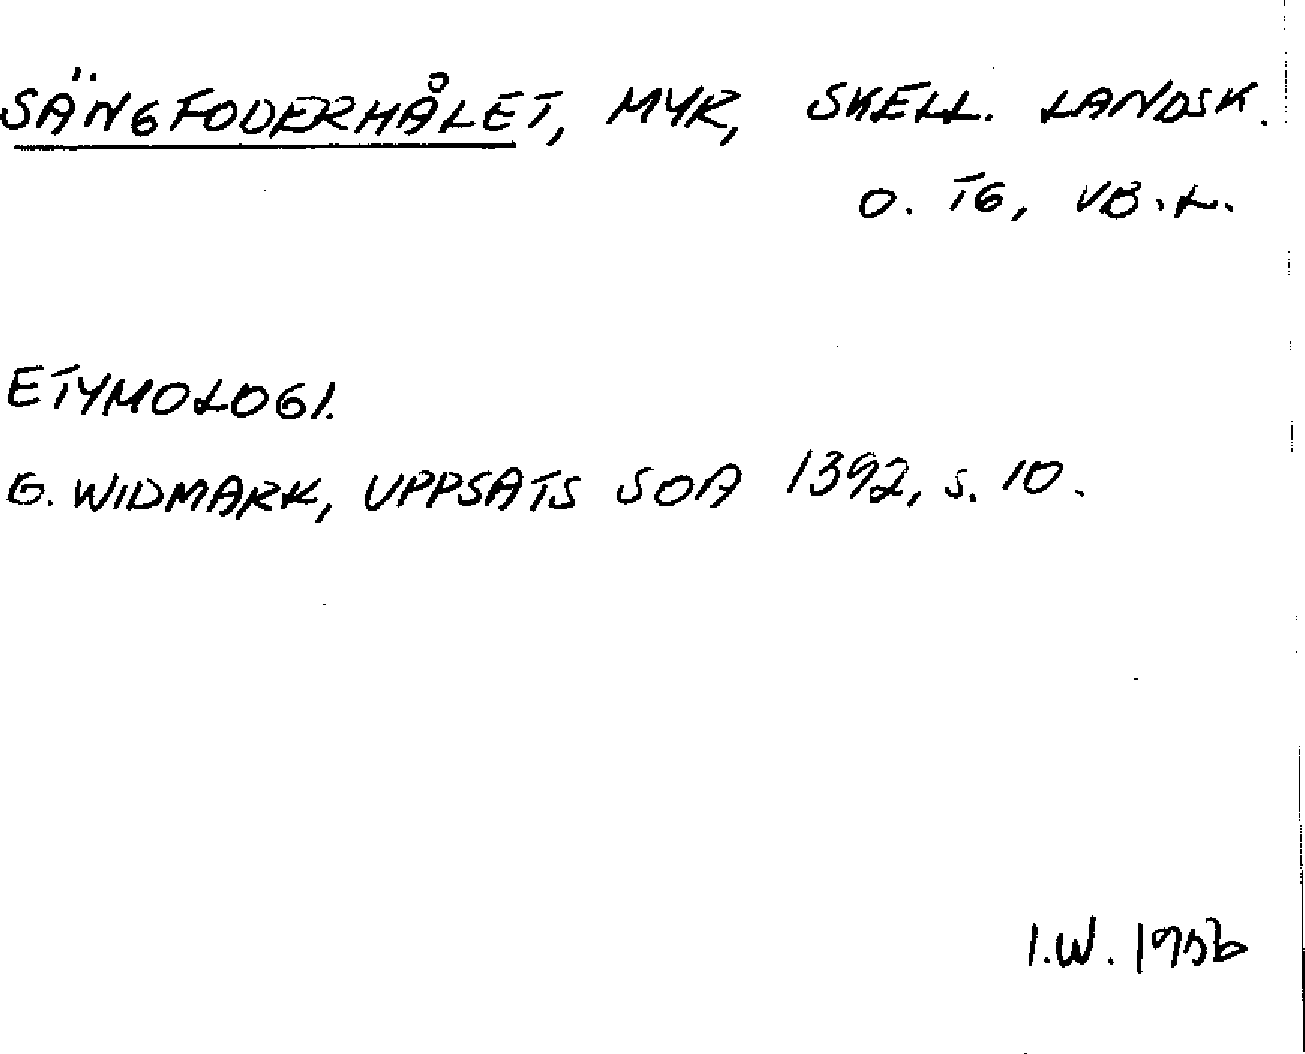 SÄNGFODERHÅLET, MYR, SKELL. LANDSK.
O. TG, VB.L.
ETYMOLOGI.
G. WIDMARK, UPPSATS SOA 1392, S. 10.
I.W. 1956